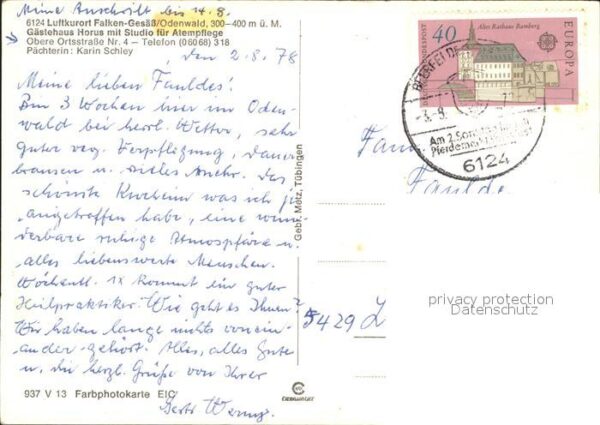 Meine Anschrift bis 14.8.
6124 Luftkurort Falken-Gesäß/Odenwald, 300–400 m ü. M.
Gästehaus Horus mit Studio für Atempflege
Obere Ortsstraße Nr. 4 – Telefon (06068) 318
Pächterin: Karin Schley
den 2.8.78
Meine lieben Faulde's!
Bin 3 Wochen hier im Oden-
wald bei herrl. Wetter, sehr
guter veg. Verpflegung, Dauer-
brausen u. vieles mehr. Das
schönste Kurheim was ich je
angetroffen habe, eine wun-
derbare ruhige Atmosphäre u.
alles liebenswerte Menschen.
Wöchentl. 1x kommt ein guter
Heilpraktiker. Wie geht es Ihnen?
Wir haben lange nichts vonein-
ander gehört. Alles, alles Gute
u. die herzl. Grüße von Ihrer
937 V 13 Farbphotokarte EIC
Gebr. Metz, Tübingen
DEUTSCHE BUNDESPOST
40
Altes Rathaus Bamberg
EUROPA
BEERFELDEN
-3.-8.
Am 2. Sonntag
Pferdemarkt
6124
Faulde
5429
privacy protection
Datenschutz